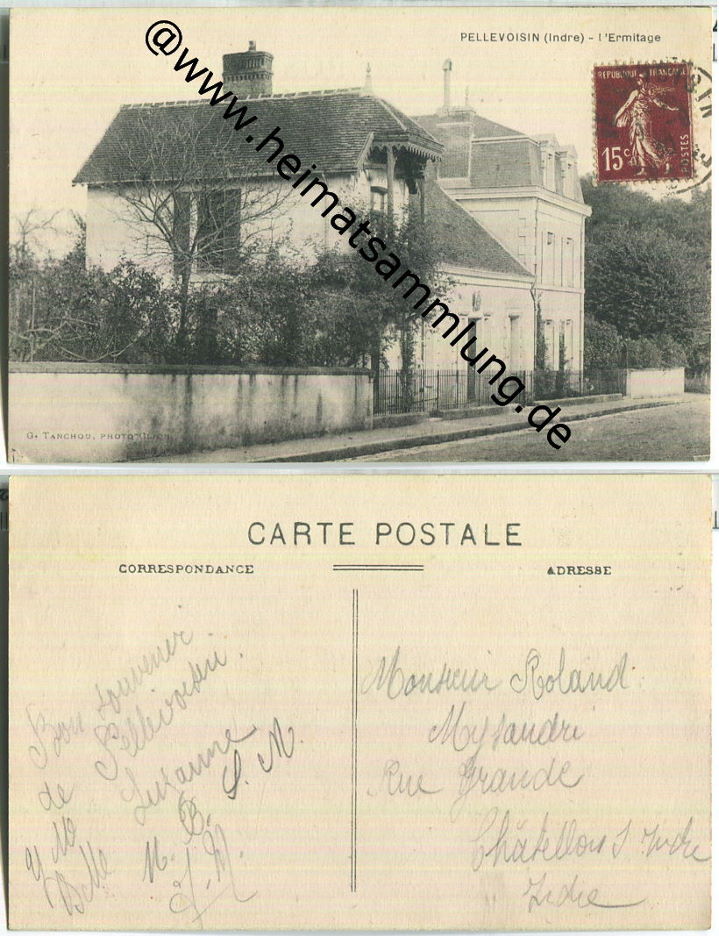 PELLEVOISIN (Indre) - l'Ermitage
REPUBLIQUE FRANÇAISE
15c
POSTES
@www.heimatsammlung.de
G. TANCHOU, PHOTO
CARTE POSTALE
CORRESPONDANCE
ADRESSE
Bon souvenir
de Pellevoisin.
Suzanne
Belle
M. B. S. M.
Monsieur Roland
Rue Grande
Châtillon s Indre
Indre